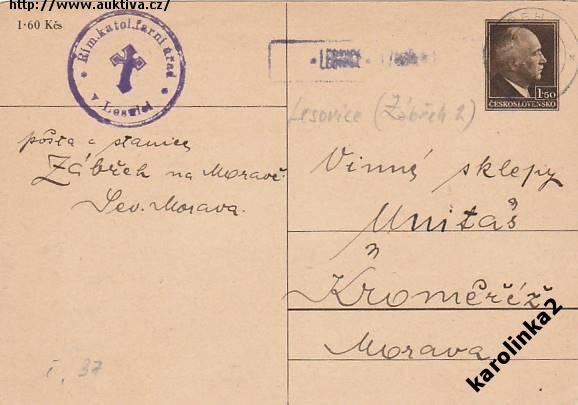 http://www.auktiva.cz/
1·60 Kčs
Řím.katol.farní úřad
v Lesnici
1·50
ČESKOSLOVENSKO
Lesovice (Zábřeh 2)
pošta a stanice
Zábřeh na Moravě
Sev. Morava.
Vinné sklepy
Unitaš
Kroměříž
Morava
č. 37
karolinka2